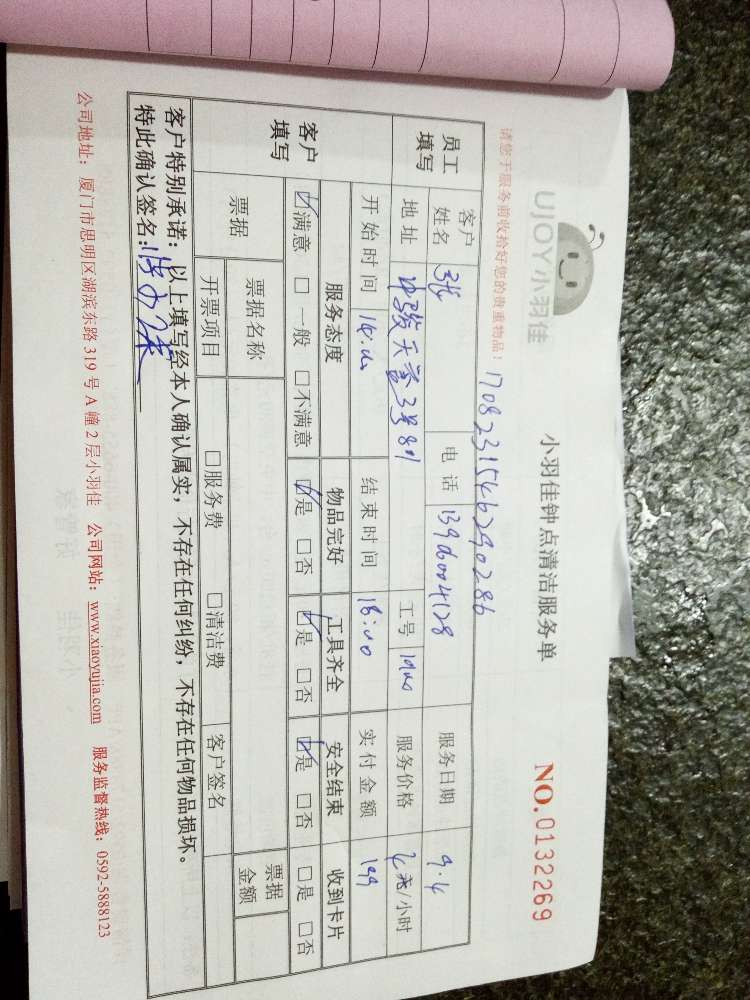 UJOY小羽佳
小羽佳钟点清洁服务单
NO.0132269
请您于服务前收拾好您的贵重物品！
1708231546290286
员工填写
客户姓名 张 电话 服务日期 9.4
地址 3号 工号 服务价格 元/小时
开始时间 14:00 结束时间 18:00 实付金额 199
客户填写
服务态度 物品完好 工具齐全 安全结束 收到卡片
☑满意 □一般 □不满意 ☑是 □否 ☑是 □否 ☑是 □否 □是 □否
票据 票据名称 票据金额
开票项目 □服务费 □清洁费 客户签名
客户特别承诺：以上填写经本人确认属实，不存在任何纠纷，不存在任何物品损坏。
特此确认签名：
公司地址：厦门市思明区湖滨东路319号A幢2层小羽佳 公司网站：www.xiaoyujia.com 服务监督热线：0592-5888123